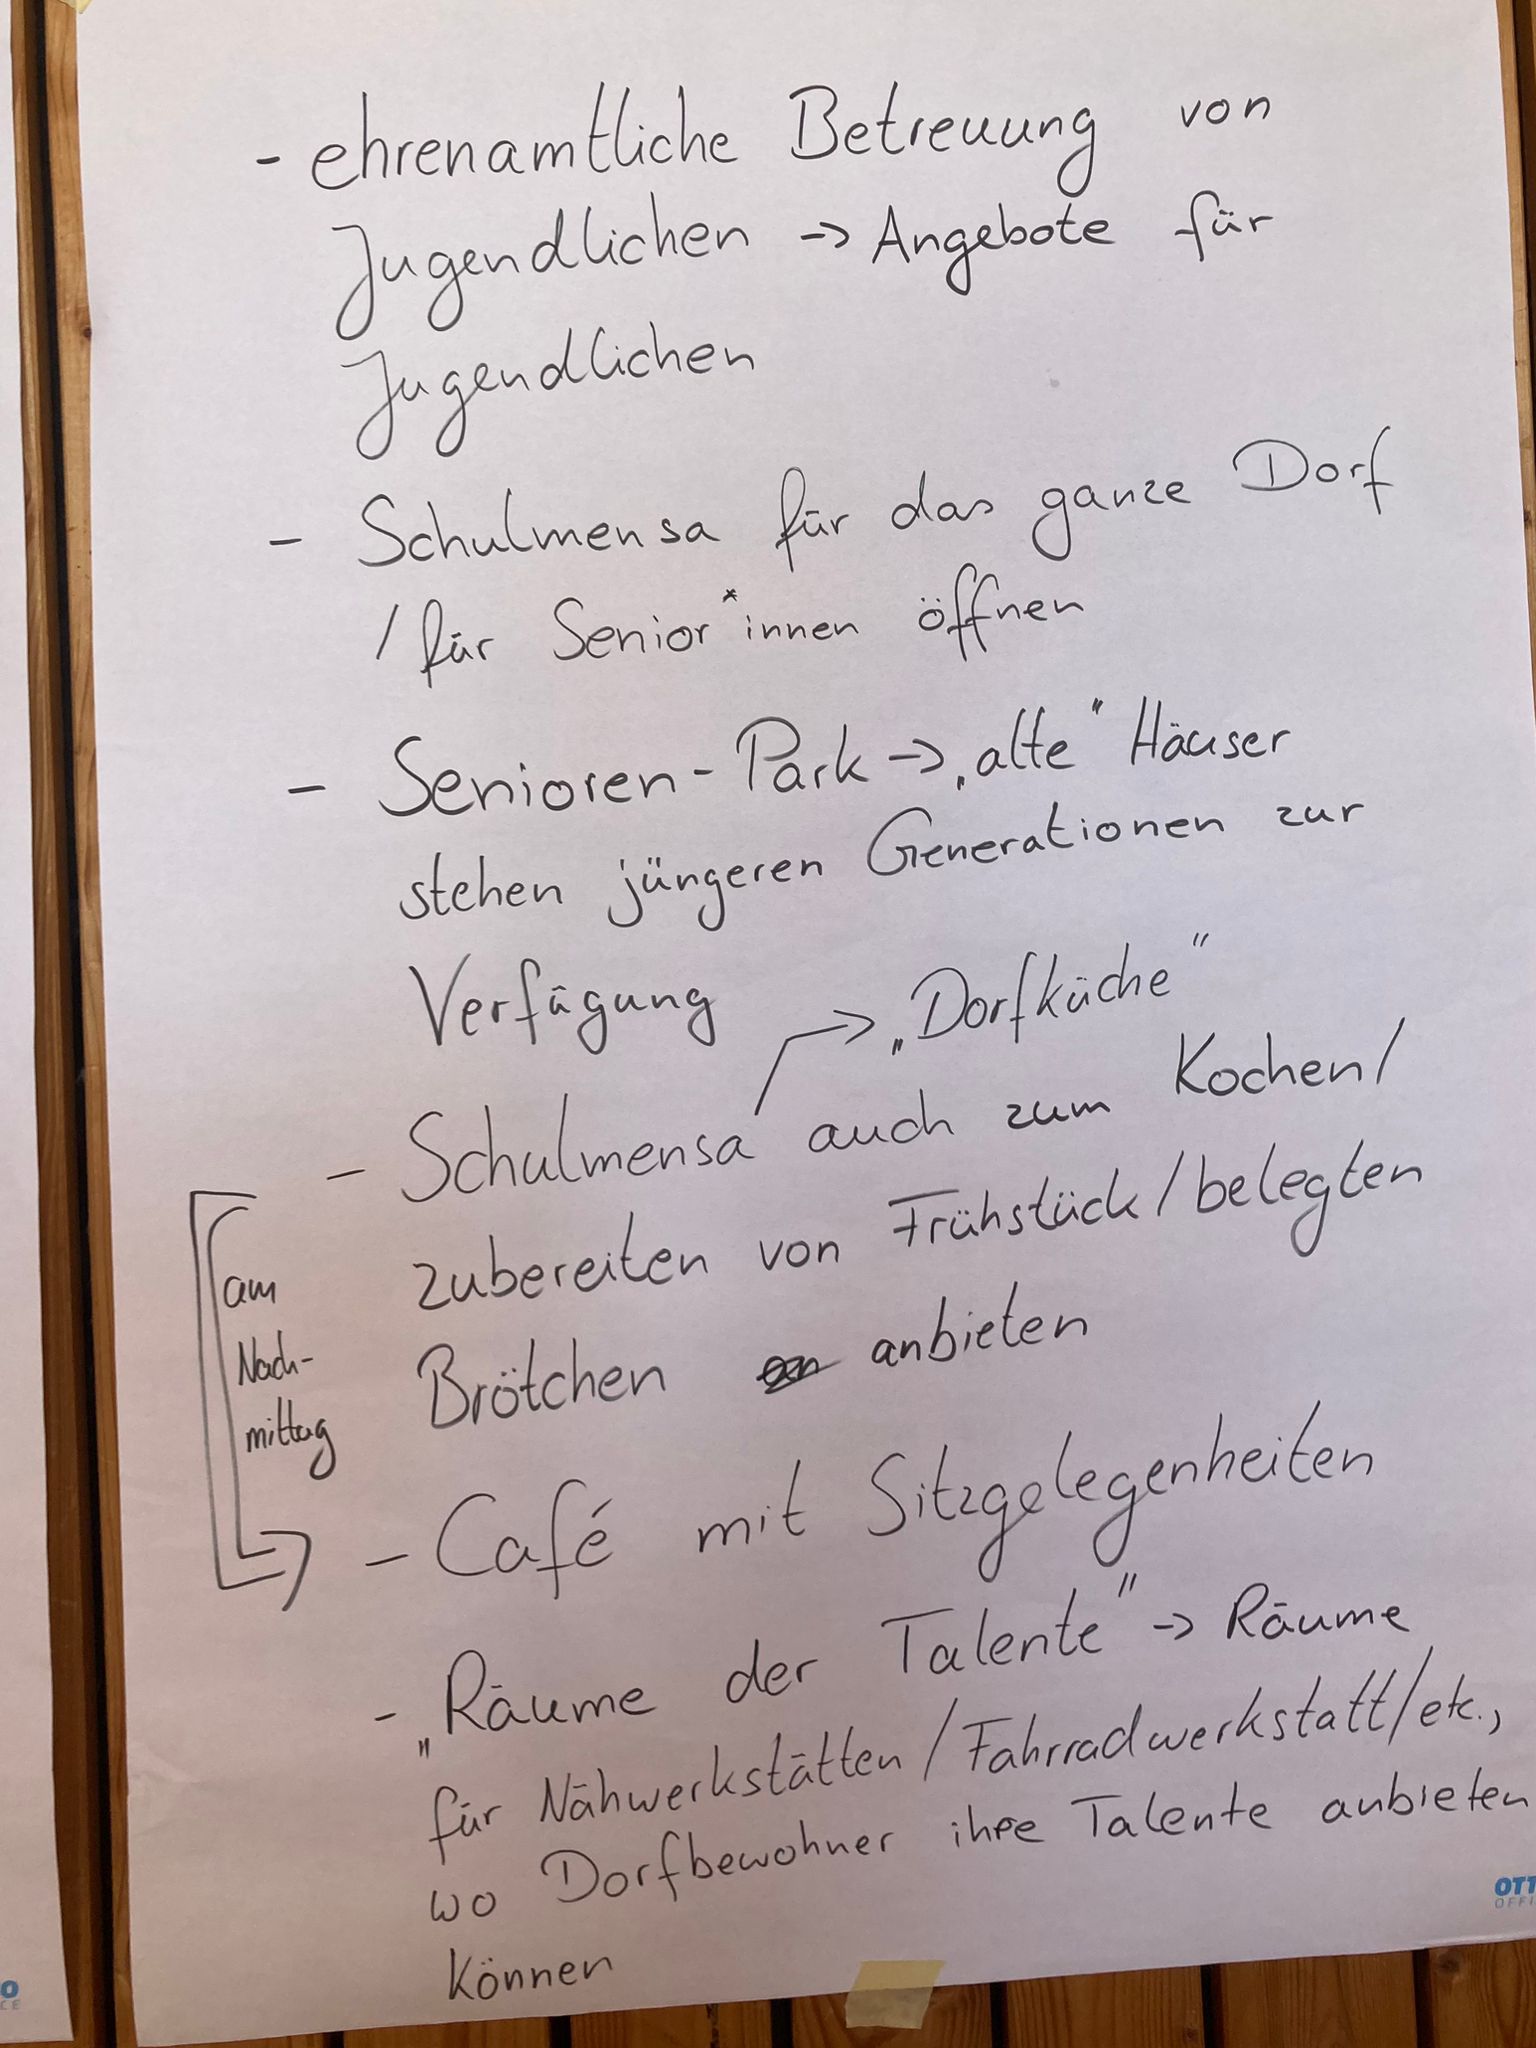 - ehrenamtliche Betreuung von
Jugendlichen -> Angebote für
Jugendlichen
- Schulmensa für das ganze Dorf
/ für Senior*innen öffnen
- Senioren-Park -> „alte" Häuser
stehen jüngeren Generationen zur
Verfügung
-> „Dorfküche"
- Schulmensa auch zum Kochen/
zubereiten von Frühstück/belegten
Brötchen anbieten
am
Nach-
mittag
- Café mit Sitzgelegenheiten
- „Räume der Talente" -> Räume
für Nähwerkstätten/Fahrradwerkstatt/etc.,
wo Dorfbewohner ihre Talente anbieten
können